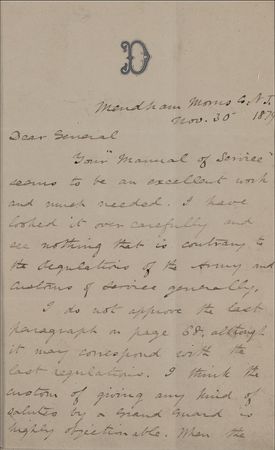 D
Mendham Morris Co. N.J.
Nov. 30 1879
Dear General
Your "Manual of Service"
seems to be an excellent work
and much needed. I have
looked it over carefully and
see nothing that is contrary to
the Regulations of the Army and
customs of service generally.
I do not approve the last
paragraph on page 68, although
it may correspond with the
last regulations. I think the
custom of giving any kind of
salutes by a Grand Guard is
highly objectionable. When the